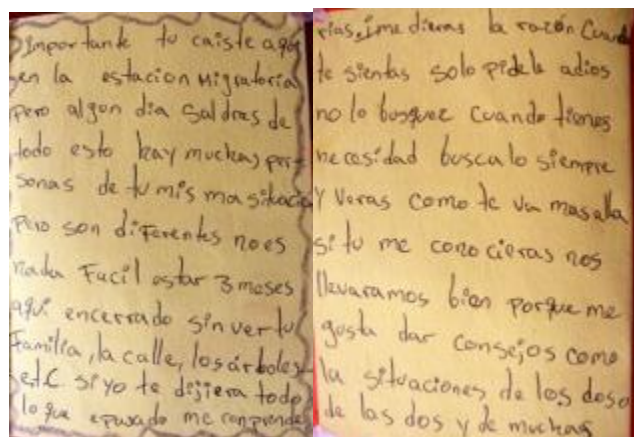 Importante tu caiste aqui
en la estacion Migratoria
pero algon dia Saldras de
todo esto hay muchas per
sonas de tu mis ma situacio
pero son diferentes no es
nada Facil estar 3 meses
aquí encerrado sin ver tu
Familia, la calle, los árboles
etc si yo te dijiera todo
lo que epasado me conprende
rias, i me dieras la razón Cuando
te sientas solo pidele adios
no lo busquez cuando tienes
necesidad buscalo siempre
y veras como te va mas alla
si tu me cono cieras nos
llevaramos bien porque me
gusta dar consejos como
la situaciones de los doso
de las dos y de muchas